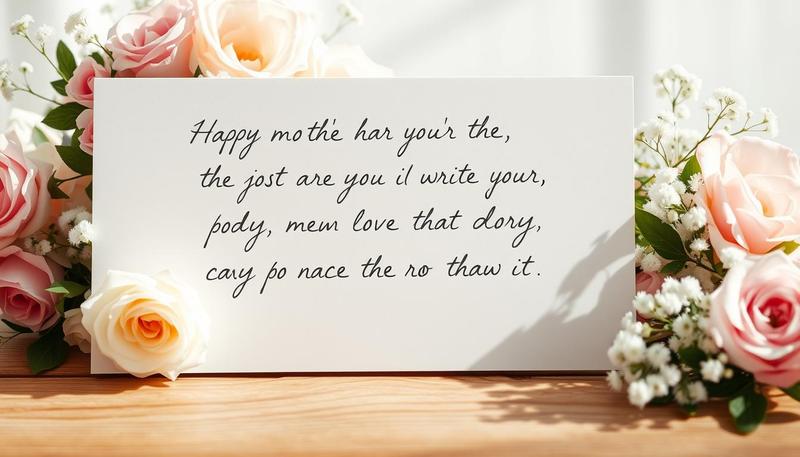 Happy mothe har you'r the,
the jost are you il write your,
pody, mem love that dory,
cay po nace the ro thaw it.